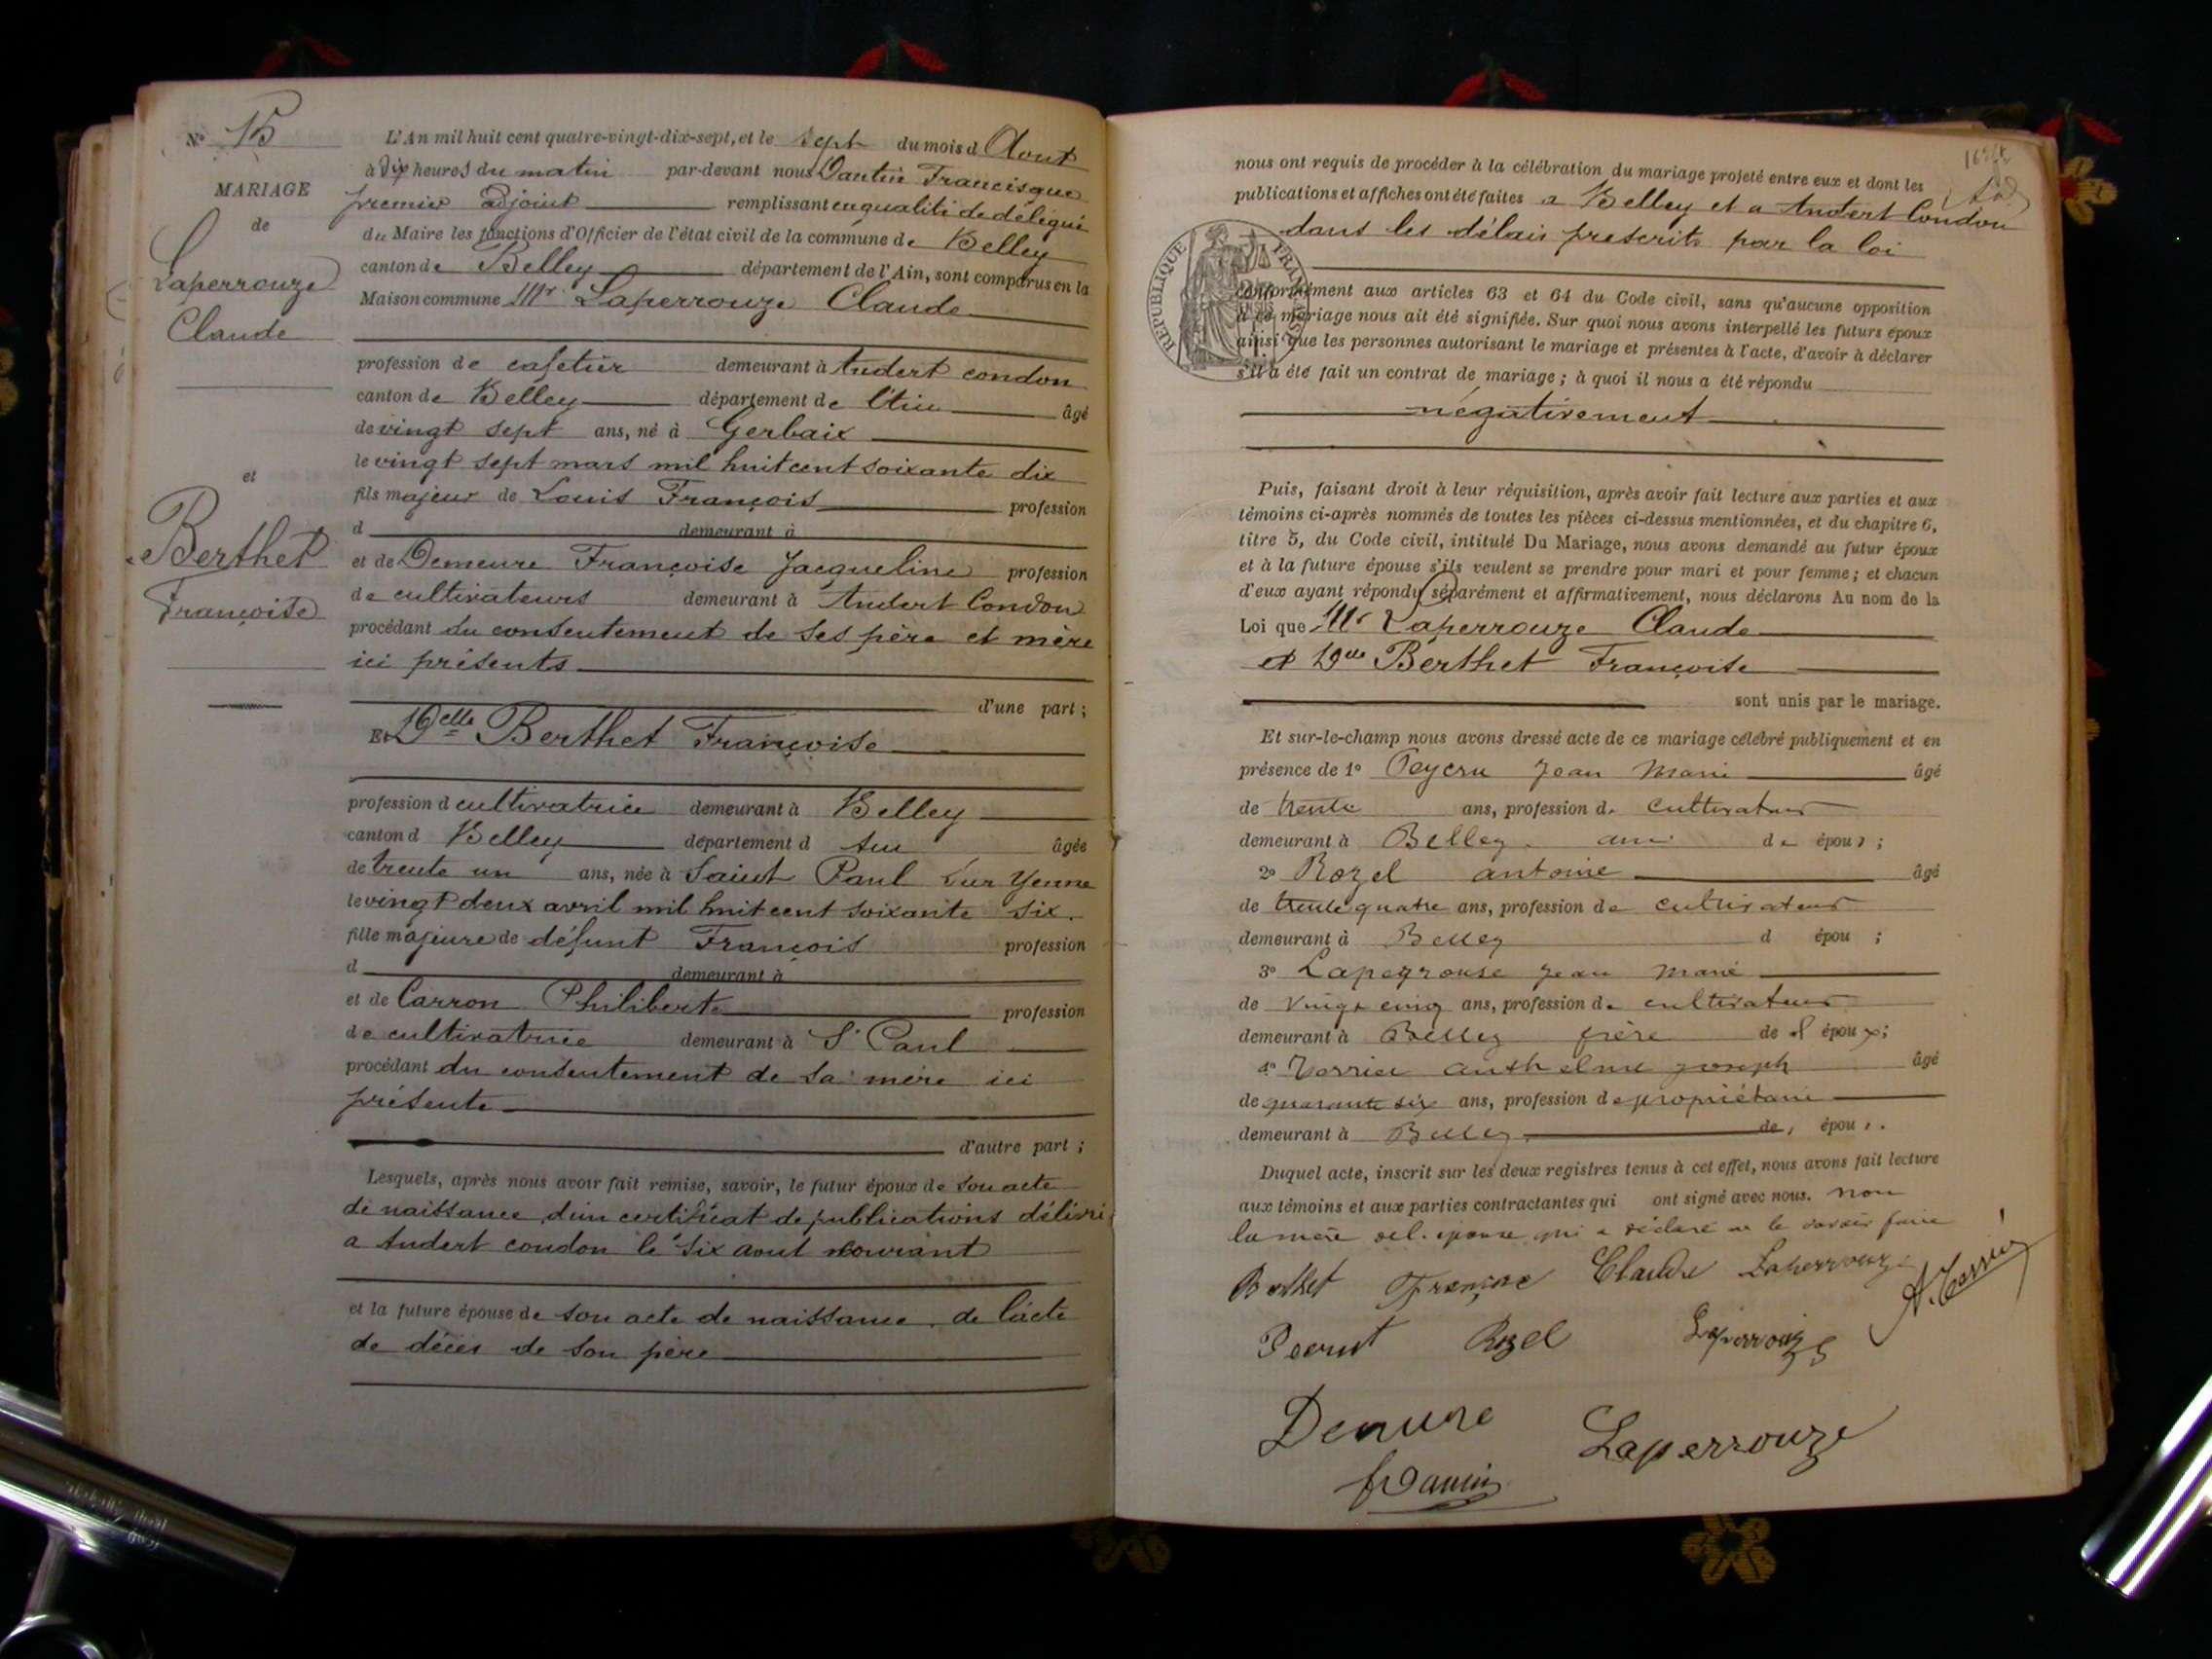 N° 15
MARIAGE
de
Laperrouze
Claude
et
Berthet
Françoise
L'An mil huit cent quatre-vingt-dix-sept, et le sept du mois d Aout
à dix heures du matin par-devant nous Dantin Francisque
premier adjoint remplissant en qualité de délégué
du Maire les fonctions d'Officier de l'état civil de la commune de Belley
canton de Belley département de l'Ain, sont comparus en la
Maison commune Mr Laperrouze Claude
profession de cafetier demeurant à Andert condon
canton de Belley département de l'Ain âgé
de vingt sept ans, né à Gerbaix
le vingt sept mars mil huit cent soixante dix
fils majeur de Louis François profession
d demeurant à
et de Demeure Françoise Jacqueline profession
de cultivateurs demeurant à Andert Condon
procédant du consentement de ses père et mère
ici présents
d'une part ;
Et Delle Berthet Françoise
profession d cultivatrice demeurant à Belley
canton d Belley département d Ain âgée
de trente un ans, née à Saint Paul sur Yenne
le vingt deux avril mil huit cent soixante six.
fille majeure de défunt François profession
d demeurant à
et de Carron Philiberte profession
de cultivatrice demeurant à St Paul
procédant du consentement de sa mère ici
présente
d'autre part ;
Lesquels, après nous avoir fait remise, savoir, le futur époux de son acte
de naissance d'un certificat de publications délivré
a Andert condon le six aout courant
et la future épouse de son acte de naissance, de l'acte
de décès de son père
nous ont requis de procéder à la célébration du mariage projeté entre eux et dont les
publications et affiches ont été faites a Belley et a Andert Condon
dans les délais prescrits par la loi
REPUBLIQUE FRANÇAISE
conformément aux articles 63 et 64 du Code civil, sans qu'aucune opposition
à ce mariage nous ait été signifiée. Sur quoi nous avons interpellé les futurs époux
ainsi que les personnes autorisant le mariage et présentes à l'acte, d'avoir à déclarer
s'il a été fait un contrat de mariage ; à quoi il nous a été répondu
négativement
Puis, faisant droit à leur réquisition, après avoir fait lecture aux parties et aux
témoins ci-après nommés de toutes les pièces ci-dessus mentionnées, et du chapitre 6,
titre 5, du Code civil, intitulé Du Mariage, nous avons demandé au futur époux
et à la future épouse s'ils veulent se prendre pour mari et pour femme ; et chacun
d'eux ayant répondu séparément et affirmativement, nous déclarons Au nom de la
Loi que Mr Laperrouze Claude
et Delle Berthet Françoise
sont unis par le mariage.
Et sur-le-champ nous avons dressé acte de ce mariage célébré publiquement et en
présence de 1° Jean Marie âgé
de trente ans, profession de cultivateur
demeurant à Belley ami de époux ;
2° Rozel antoine âgé
de trente quatre ans, profession de cultivateur
demeurant à Belley d épou ;
3° Lapeyrouse Jean Marie
de vingt cinq ans, profession de cultivateur
demeurant à Belley frère de l époux ;
4° anthelme joseph âgé
de quarante six ans, profession de propriétaire
demeurant à Belley de épou .
Duquel acte, inscrit sur les deux registres tenus à cet effet, nous avons fait lecture
aux témoins et aux parties contractantes qui ont signé avec nous. non
la mère de l'épouse qui a déclaré ne le savoir faire
Berthet Françoise Claude Laperrouze
Rozel Laperrouze
Demure Laperrouze